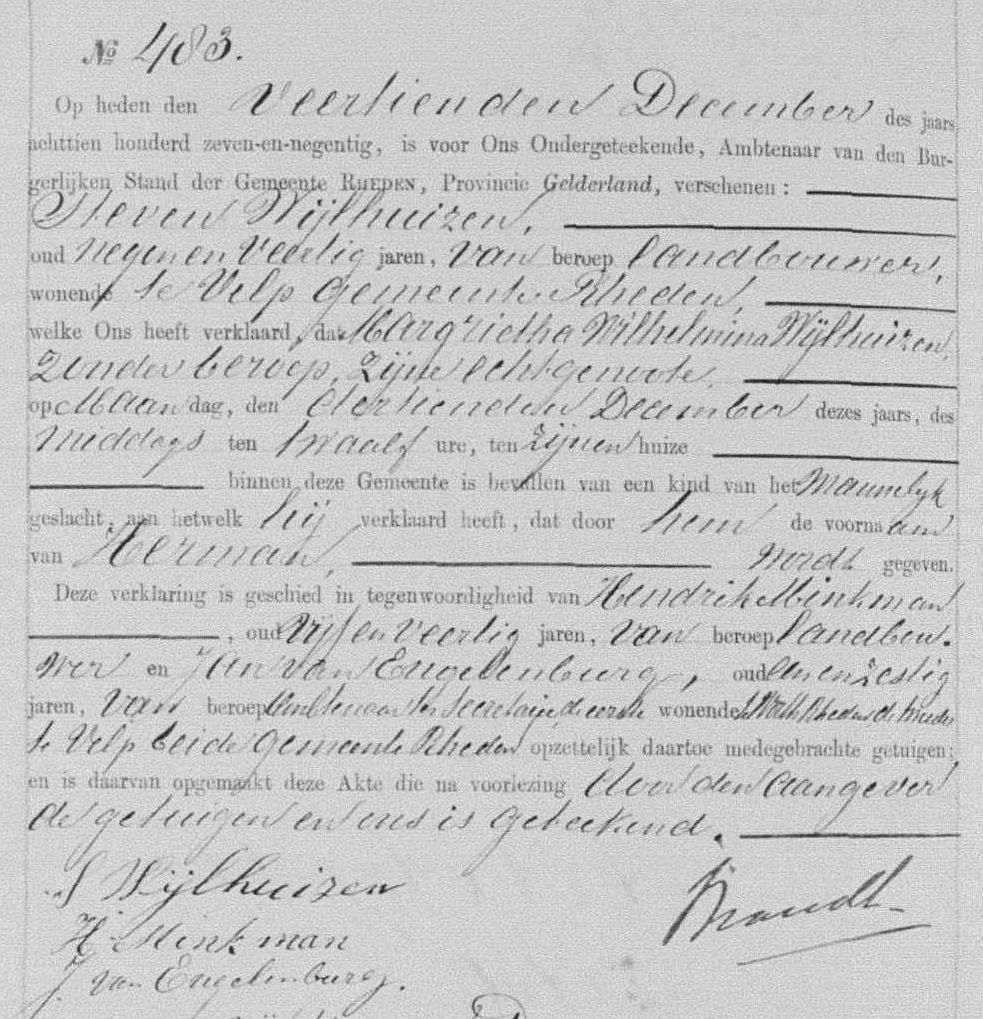 No 483.
Op heden den Veertienden December des jaars
achttien honderd zeven-en-negentig, is voor Ons Ondergeteekende, Ambtenaar van den Bur-
gerlijken Stand der Gemeente RHEDEN, Provincie Gelderland, verschenen:
Steven Wijlhuizen,
oud negen en veertig jaren, van beroep landbouwer,
wonende te Velp gemeente Rheden,
welke Ons heeft verklaard, dat Margrietha Wilhelmina Wijlhuizen,
zonder beroep, zijne echtgenoote,
op Maandag, den dertienden December dezes jaars, des
middags ten twaalf ure, ten zijnen huize
binnen deze Gemeente is bevallen van een kind van het Mannelijk
geslacht, aan hetwelk hij verklaard heeft, dat door hem de voornaam
van Herman, wordt gegeven.
Deze verklaring is geschied in tegenwoordigheid van Hendrik Minkman
, oud vijf en veertig jaren, van beroep landbou-
wer en Jan van Engelenburg, oud een en zestig
jaren, van beroep Ambtenaar ter Secretarie, de eerste wonende te Rheden de tweede
te Velp beide gemeente Rheden opzettelijk daartoe medegebrachte getuigen;
en is daarvan opgemaakt deze Akte die na voorlezing door den aangever
de getuigen en ons is geteekend.
S Wijlhuizen
H. Minkman
J. van Engelenburg.
Brandt